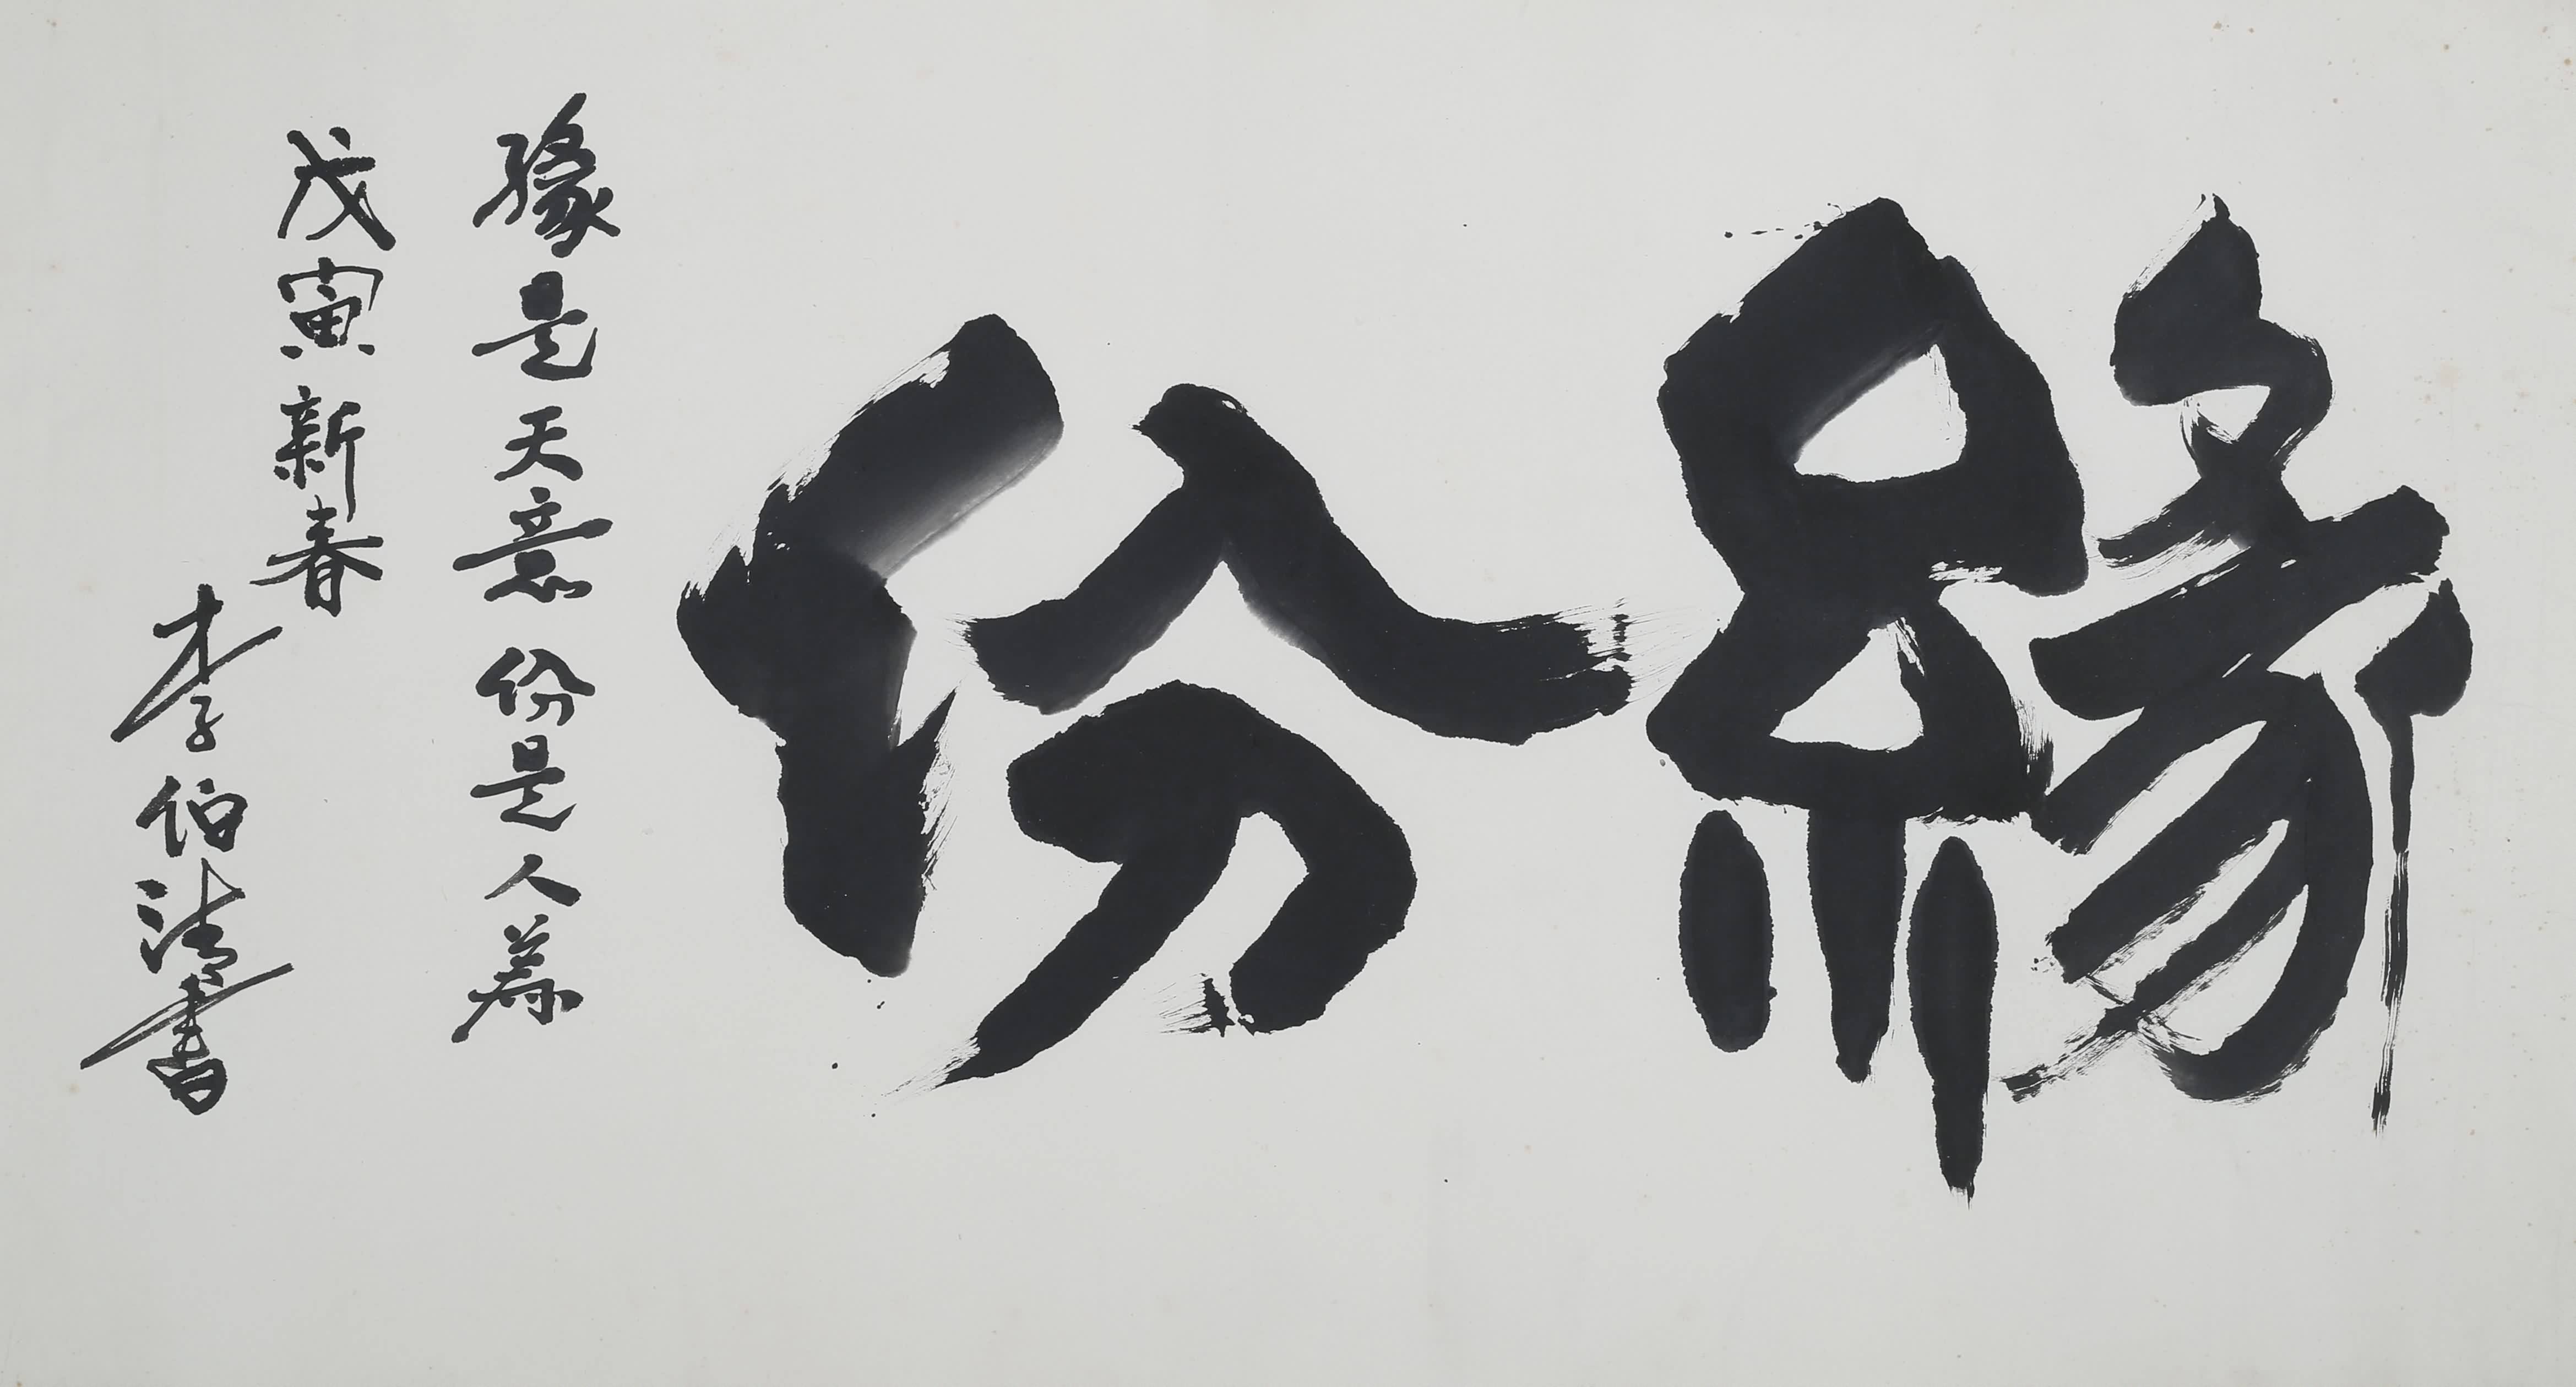 緣份
緣是天意份是人為
戊寅新春
李伯清書